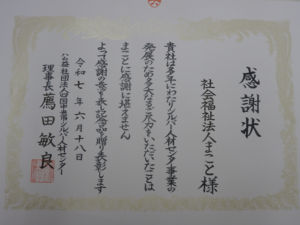 感謝状
社会福祉法人まこと様
貴社は多年にわたりシルバー人材センター事業の
発展のため多大なる尽力をいただいたことは
まことに感謝に堪えません
よって感謝の意を表し記念品を贈り表彰します
令和七年六月十八日
公益社団法人四国中央市シルバー人材センター
理事長 薦田敏良